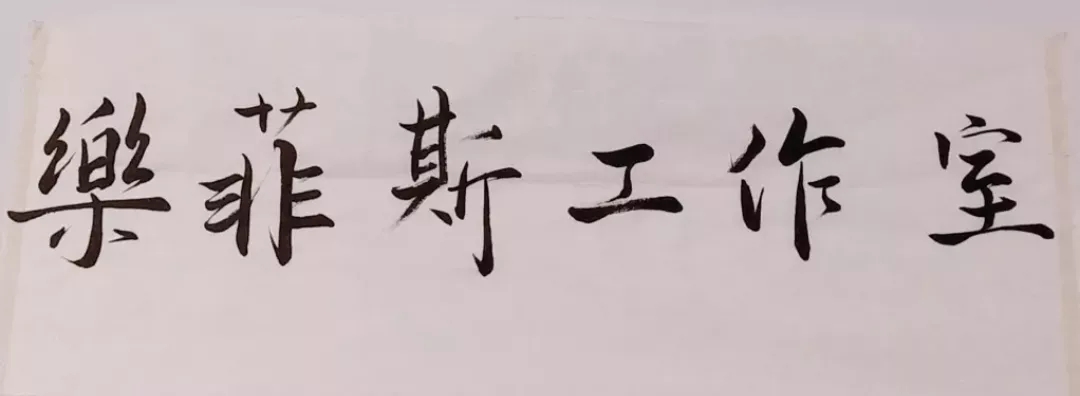 樂菲斯工作室